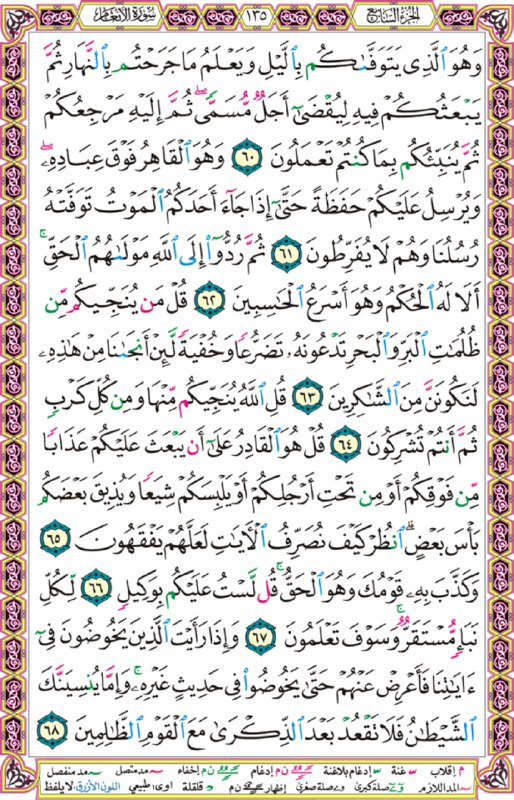 الجزء السابع ١٣٥ سورة الأنعام
وَهُوَ ٱلَّذِى يَتَوَفَّىٰكُم بِٱلَّيْلِ وَيَعْلَمُ مَا جَرَحْتُم بِٱلنَّهَارِ ثُمَّ
يَبْعَثُكُمْ فِيهِ لِيُقْضَىٰٓ أَجَلٌ مُّسَمًّى ۖ ثُمَّ إِلَيْهِ مَرْجِعُكُمْ
ثُمَّ يُنَبِّئُكُم بِمَا كُنتُمْ تَعْمَلُونَ ٦٠ وَهُوَ ٱلْقَاهِرُ فَوْقَ عِبَادِهِۦ ۖ
وَيُرْسِلُ عَلَيْكُمْ حَفَظَةً حَتَّىٰٓ إِذَا جَآءَ أَحَدَكُمُ ٱلْمَوْتُ تَوَفَّتْهُ
رُسُلُنَا وَهُمْ لَا يُفَرِّطُونَ ٦١ ثُمَّ رُدُّوٓا۟ إِلَى ٱللَّهِ مَوْلَىٰهُمُ ٱلْحَقِّ ۚ
أَلَا لَهُ ٱلْحُكْمُ وَهُوَ أَسْرَعُ ٱلْحَٰسِبِينَ ٦٢ قُلْ مَن يُنَجِّيكُم مِّن
ظُلُمَٰتِ ٱلْبَرِّ وَٱلْبَحْرِ تَدْعُونَهُۥ تَضَرُّعًا وَخُفْيَةً لَّئِنْ أَنجَىٰنَا مِنْ هَٰذِهِۦ
لَنَكُونَنَّ مِنَ ٱلشَّٰكِرِينَ ٦٣ قُلِ ٱللَّهُ يُنَجِّيكُم مِّنْهَا وَمِن كُلِّ كَرْبٍ
ثُمَّ أَنتُمْ تُشْرِكُونَ ٦٤ قُلْ هُوَ ٱلْقَادِرُ عَلَىٰٓ أَن يَبْعَثَ عَلَيْكُمْ عَذَابًا
مِّن فَوْقِكُمْ أَوْ مِن تَحْتِ أَرْجُلِكُمْ أَوْ يَلْبِسَكُمْ شِيَعًا وَيُذِيقَ بَعْضَكُم
بَأْسَ بَعْضٍ ۗ ٱنظُرْ كَيْفَ نُصَرِّفُ ٱلْءَايَٰتِ لَعَلَّهُمْ يَفْقَهُونَ ٦٥
وَكَذَّبَ بِهِۦ قَوْمُكَ وَهُوَ ٱلْحَقُّ ۚ قُل لَّسْتُ عَلَيْكُم بِوَكِيلٍ ٦٦ لِّكُلِّ
نَبَإٍ مُّسْتَقَرٌّ ۚ وَسَوْفَ تَعْلَمُونَ ٦٧ وَإِذَا رَأَيْتَ ٱلَّذِينَ يَخُوضُونَ فِىٓ
ءَايَٰتِنَا فَأَعْرِضْ عَنْهُمْ حَتَّىٰ يَخُوضُوا۟ فِى حَدِيثٍ غَيْرِهِۦ ۚ وَإِمَّا يُنسِيَنَّكَ
ٱلشَّيْطَٰنُ فَلَا تَقْعُدْ بَعْدَ ٱلذِّكْرَىٰ مَعَ ٱلْقَوْمِ ٱلظَّٰلِمِينَ ٦٨
م إقلاب غنة إدغام بلاغنة ن م إدغام ن م إخفاء مد متصل مد منفصل
المد اللازم صلة كبرى صلة صغرى إظهار ن م قلقلة اوى: طبيعي اللون الأزرق: لا يلفظ